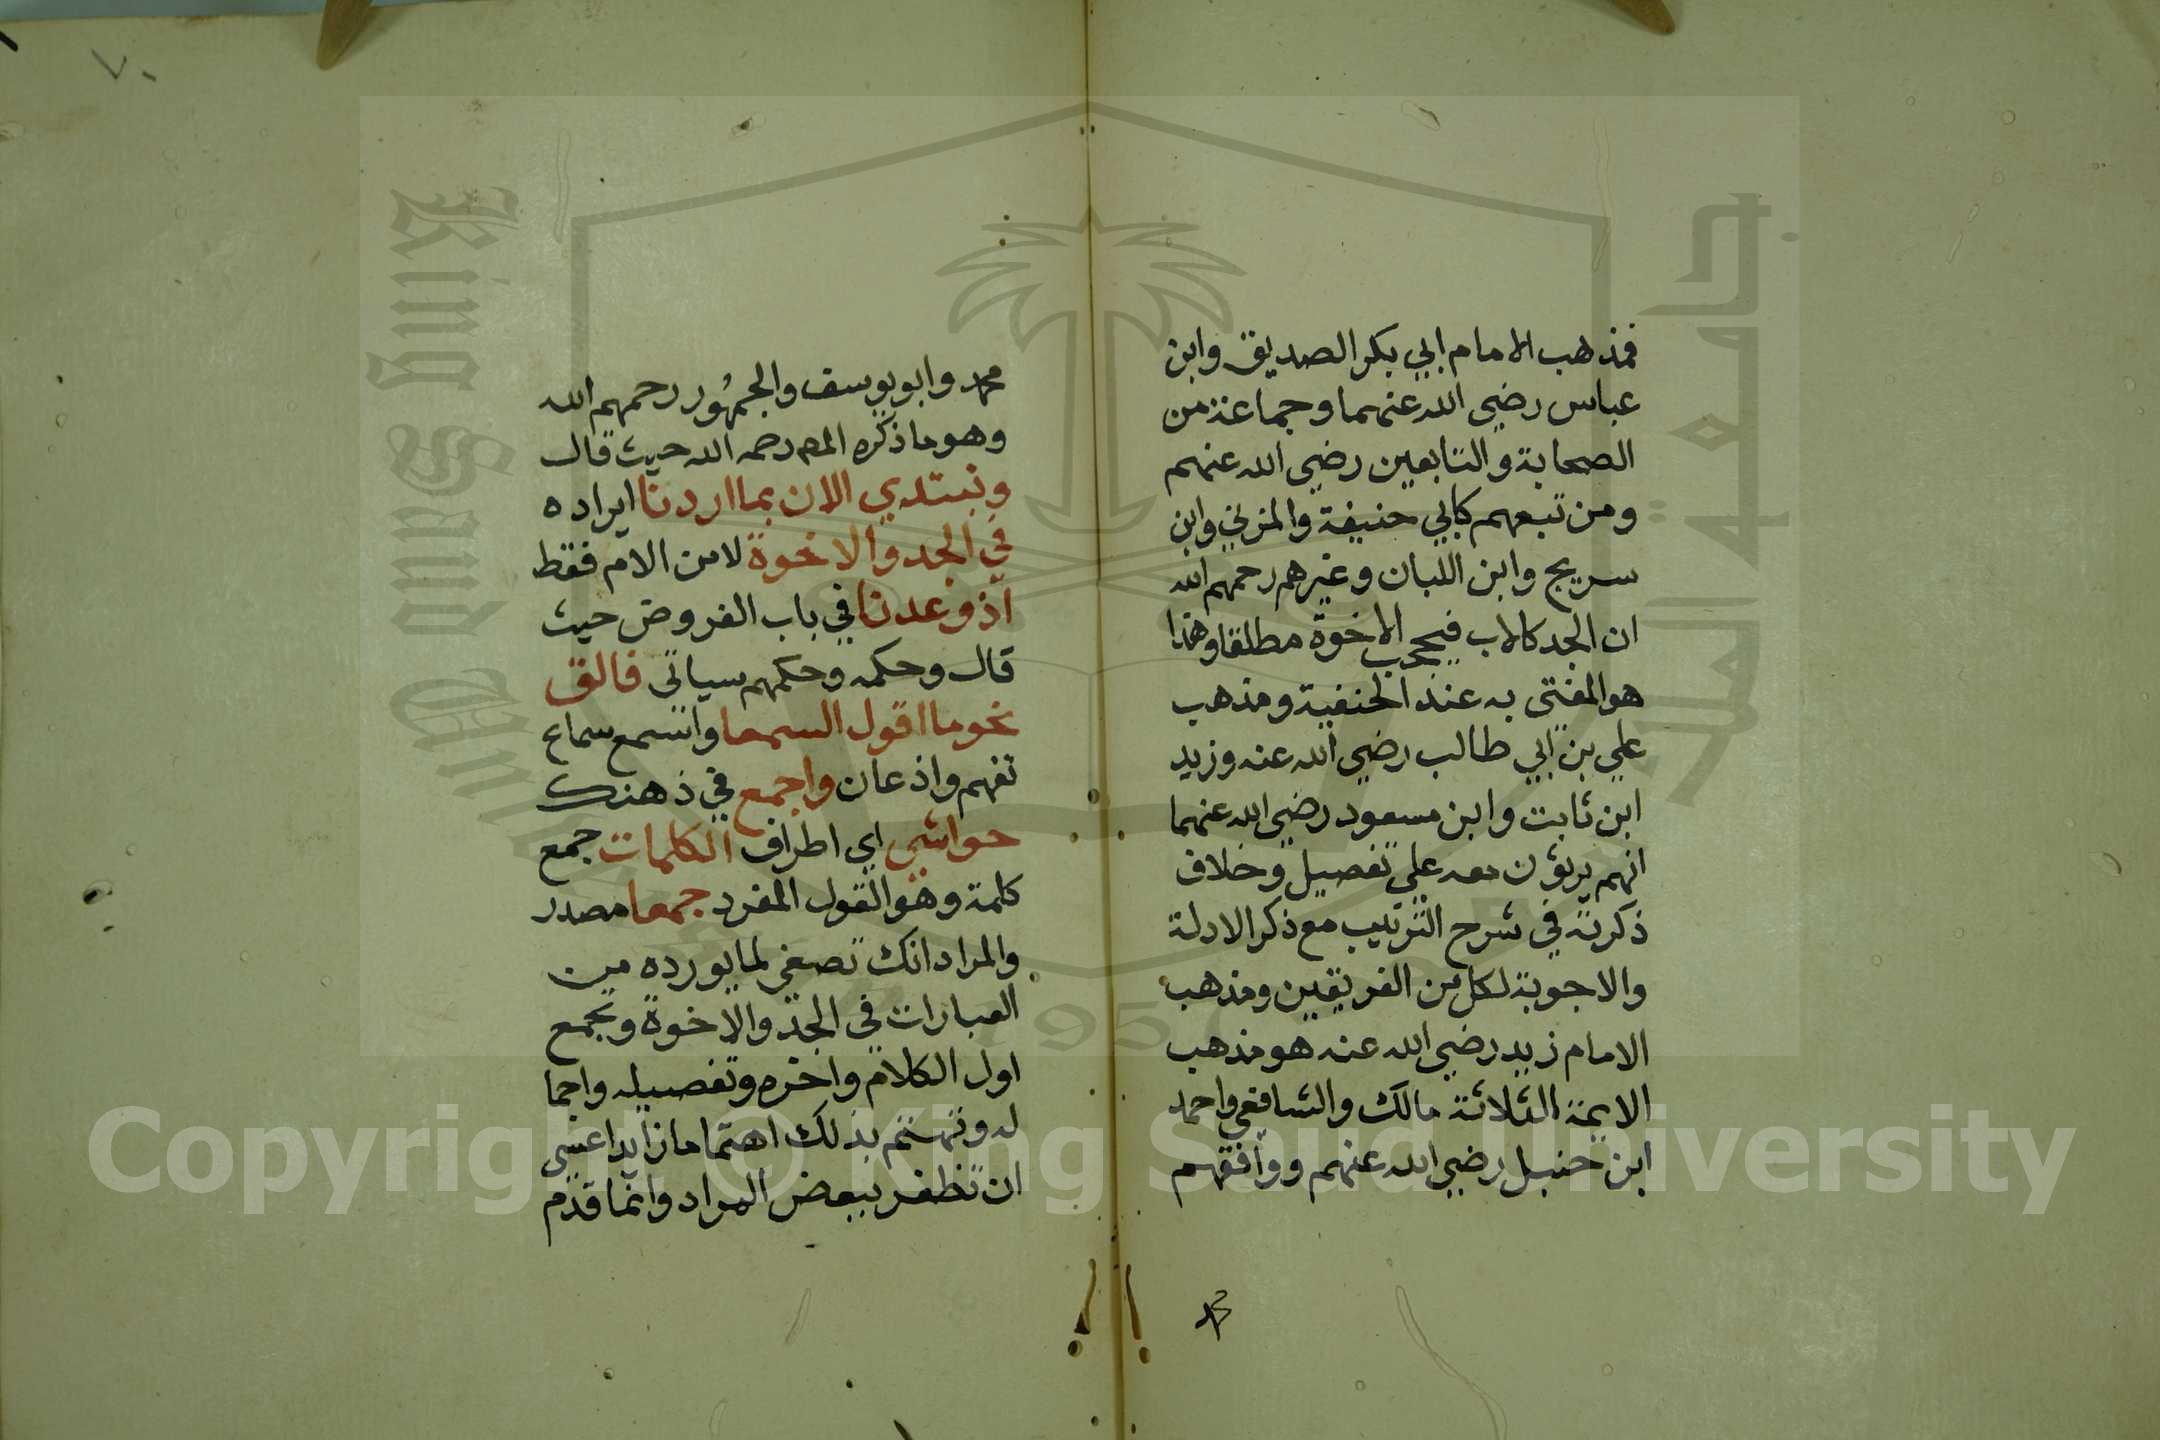 فمذهب الامام ابي بكر الصديق وابن
عباس رضي الله عنهما وجماعة من
الصحابة والتابعين رضي الله عنهم
ومن تبعهم كابي حنيفة والمزني وابن
سريج وابن اللبان وغيرهم رحمهم الله
ان الجد كالاب فيحجب الاخوة مطلقا وهذا
هو المفتى به عند الحنفية ومذهب
علي بن ابي طالب رضي الله عنه وزيد
ابن ثابت وابن مسعود رضي الله عنهما
انهم يرثون معه علي تفصيل وخلاف
ذكرته في شرح الترتيب مع ذكر الادلة
والاجوبة لكل من الفريقين ومذهب
الامام زيد رضي الله عنه هو مذهب
الايمة الثلاثة مالك والشافعي واحمد
ابن حنبل رضي الله عنهم ووافقهم
محمد
٧٠
محمد وابو يوسف والجمهور رحمهم الله
وهو ما ذكره المص رحمه الله حيث قال
ونبتدي الان بما اردنا ايراده
في الجد والاخوة لا من الام فقط
اذ وعدنا في باب الفروض حيث
قال وحكمه وحكمهم سياتي فالق
نحو ما اقول السمعا واسمع سماع
تفهم واذعان واجمع في ذهنك
حواشي اي اطراف الكلمات جمع
كلمة وهو القول المفرد جمعا مصدر
والمراد انك تصغي لما يورده من
العبارات في الجد والاخوة وتجمع
اول الكلام واخره وتفصيله واجما
له وتهتم بذلك اهتماما زايدا عسى
ان تظفر ببعض المراد وانما قدم
King Saud University
جامعة الملك سعود
1957
Copyright © King Saud University